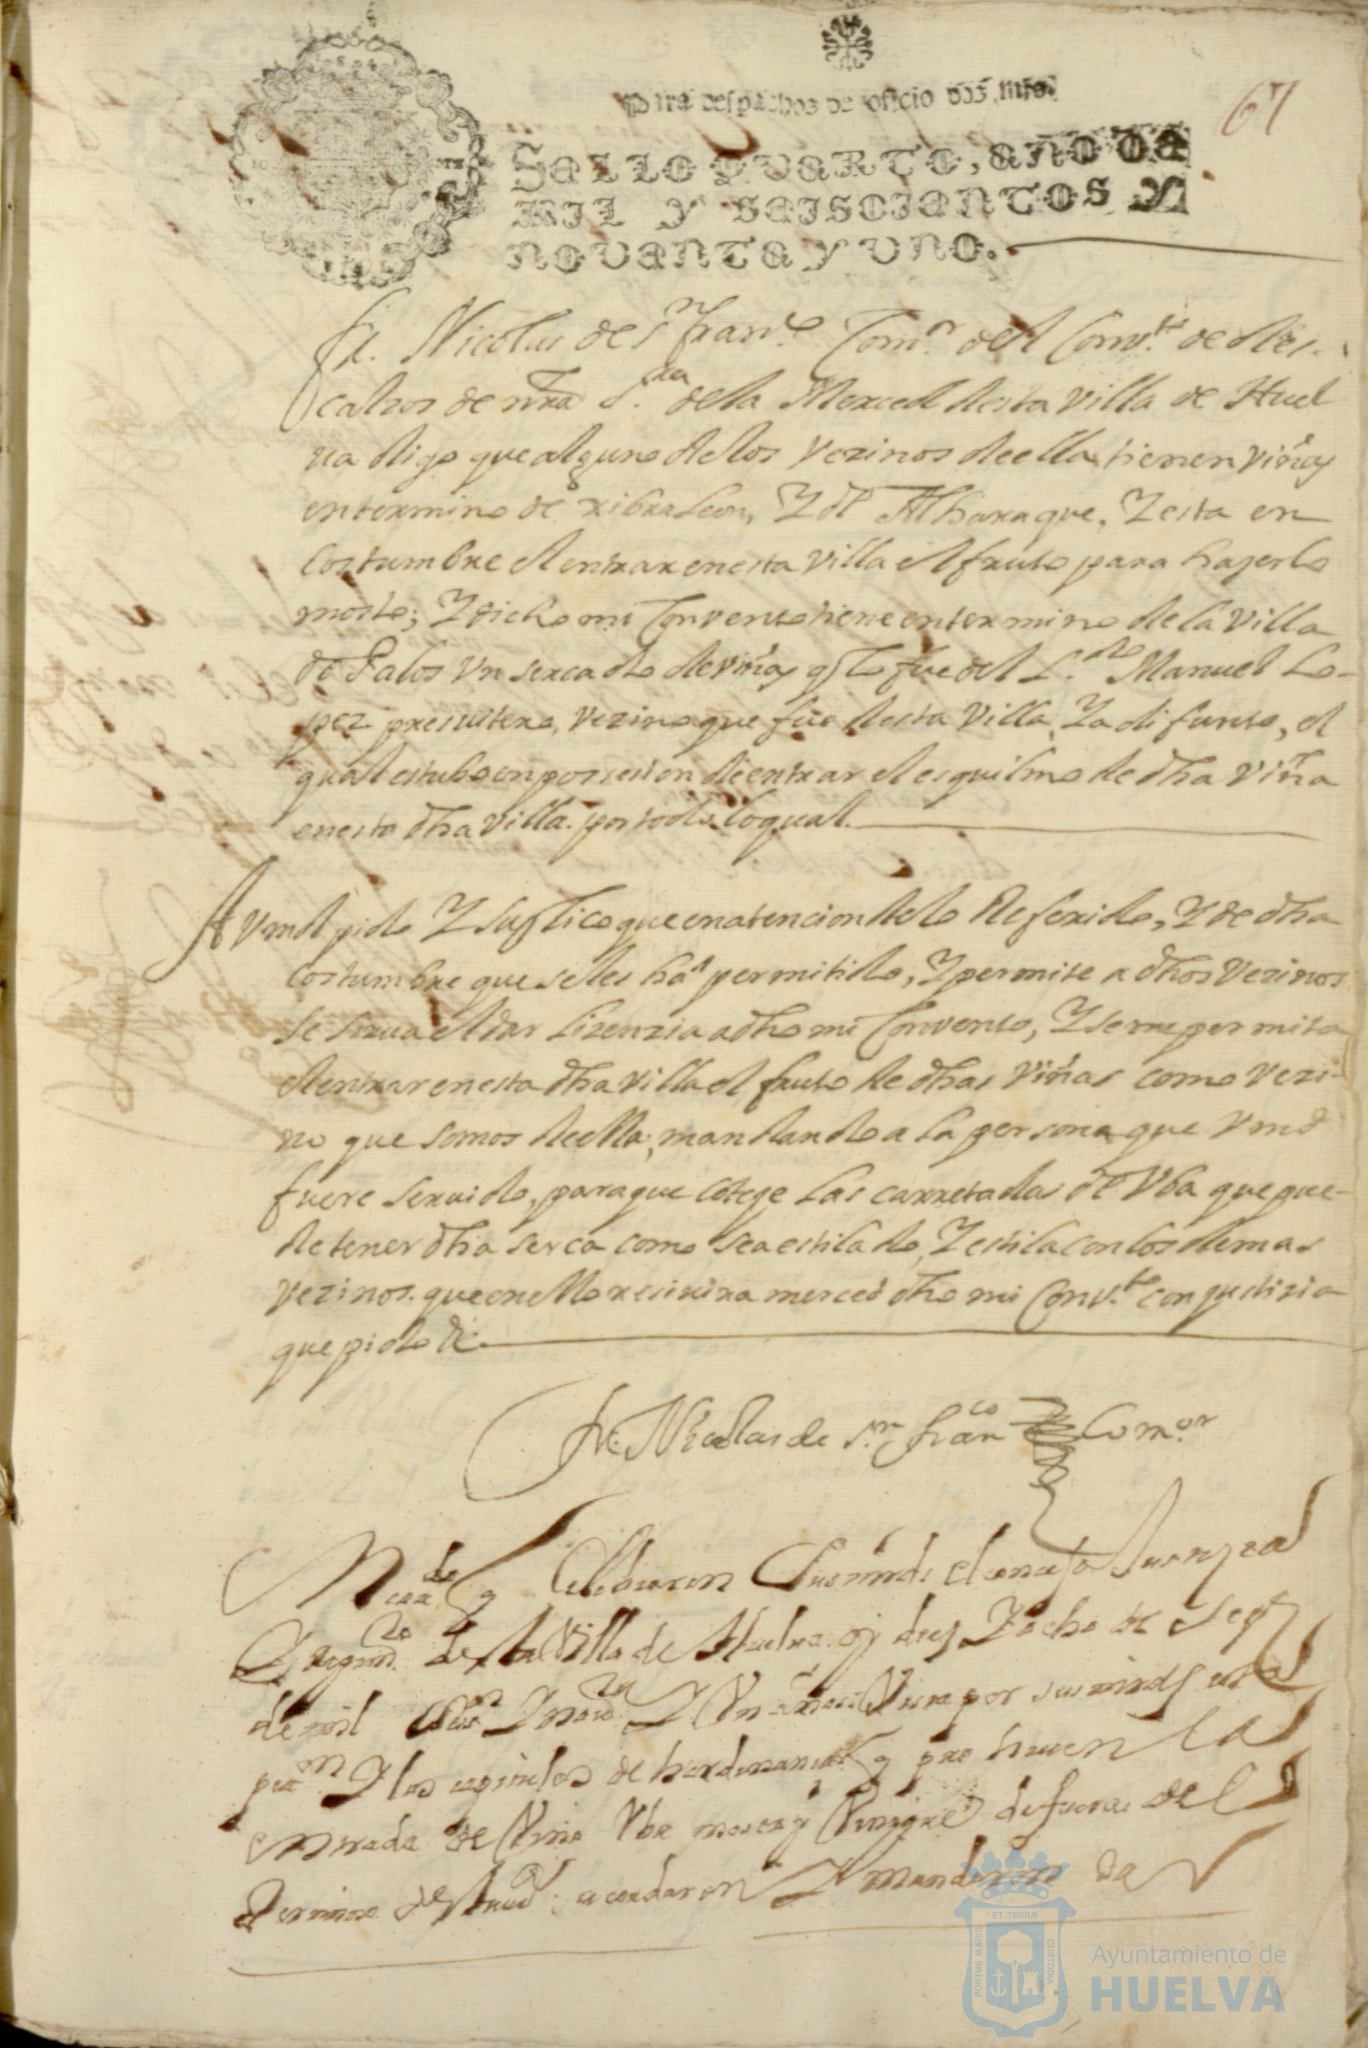 Para despachos de oficio dos mrs.
67
SELLO QVARTO, AÑO DE
MIL Y SEISCIENTOS Y
NOVENTA Y VNO.
fr. Nicolas de Sn. franco. Comor. del Convto. de des-
calsos de nra Sra. de la Merced desta villa de Huel
va digo que alguno de los Vezinos de ella tienen viñas
en termino de xibraleon, Y de Alharaque, Y esta en
costumbre el entrar en esta villa el fruto para hazerlo
mosto; Y dicho mi Convento tiene en termino de la villa
de Palos Vn sercado de viñas q fue del Ldo. Manuel Lo-
pez presvitero, vezino que fue desta villa, Ya difunto, el
qual estubo en possesion de entrar el esquilmo de dha viña
en esta dha villa. por todo lo qual.
A Vmd pido Y suplico que en atencion de lo Referido, Y de dha
costumbre que se les ha permitido, Y permite a dhos Vezinos
se sirva el dar lizenzia a dho mi Convento, Y se me permita
el entrar en esta dha villa el fruto de dhas viñas como vezi-
no que somos de ella, mandando a la persona que Vmd
fuere servido, para que coteje las carretadas de Vba que pue-
de tener dha serca como sea estilado, Y estila con los demas
vezinos. que en ello resivira merced dho mi Convto. con justizia
que pido &.
fr. Nicolas de Sn. franco Comor
de la Villa de Huelva en diez Y ocho de
de mil Y Vn años Vista por sus mrds esta
petn. Y los capitulos de hordenanzas q prohiven la
entrada de Vino Vba mosto y Vinagre de fuera del
termino acordaron Y mandaron
PORTUS MARIS ET TERRAE CUSTODIA
Ayuntamiento de
HUELVA